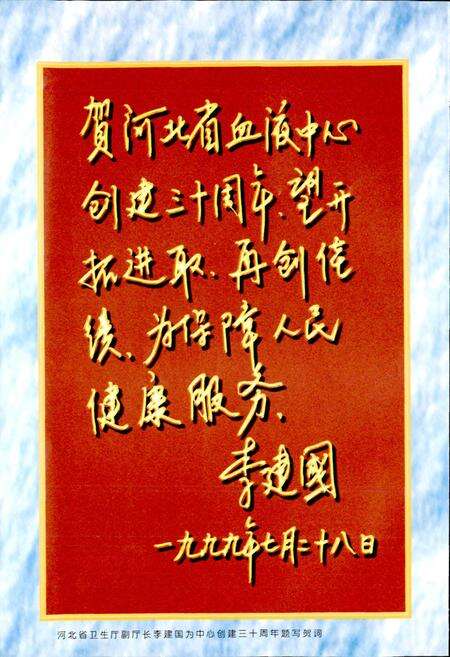 贺河北省血液中心
创建三十周年、望开
拓进取、再创佳
绩、为保障人民
健康服务、
李建國
一九九九年七月二十八日
河北省卫生厅副厅长李建国为中心创建三十周年题写贺词